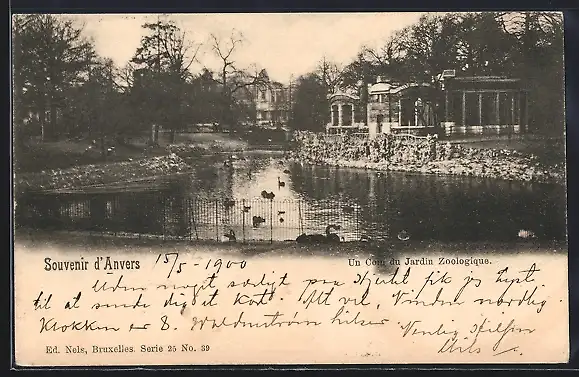 Souvenir d'Anvers
15/5 - 1900
Un Coin du Jardin Zoologique.
Uden noget særligt paa Hjertet fik jeg Lyst
til at sende dig et Kort. Alt vel, Vinden nordlig.
Klokken er 8. Waldmstrøm hilser Venlig Hilsen
Ed. Nels, Bruxelles. Serie 25 No. 39